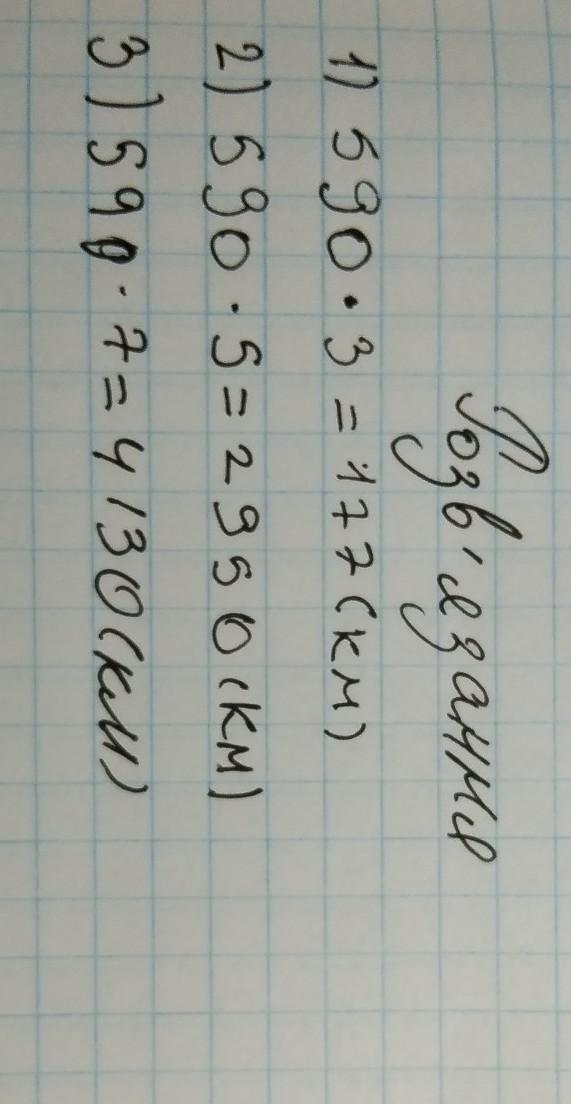 Розв'язання
1) 590 · 3 = 177 (км)
2) 590 · 5 = 2950 (км)
3) 590 · 7 = 4130 (км)